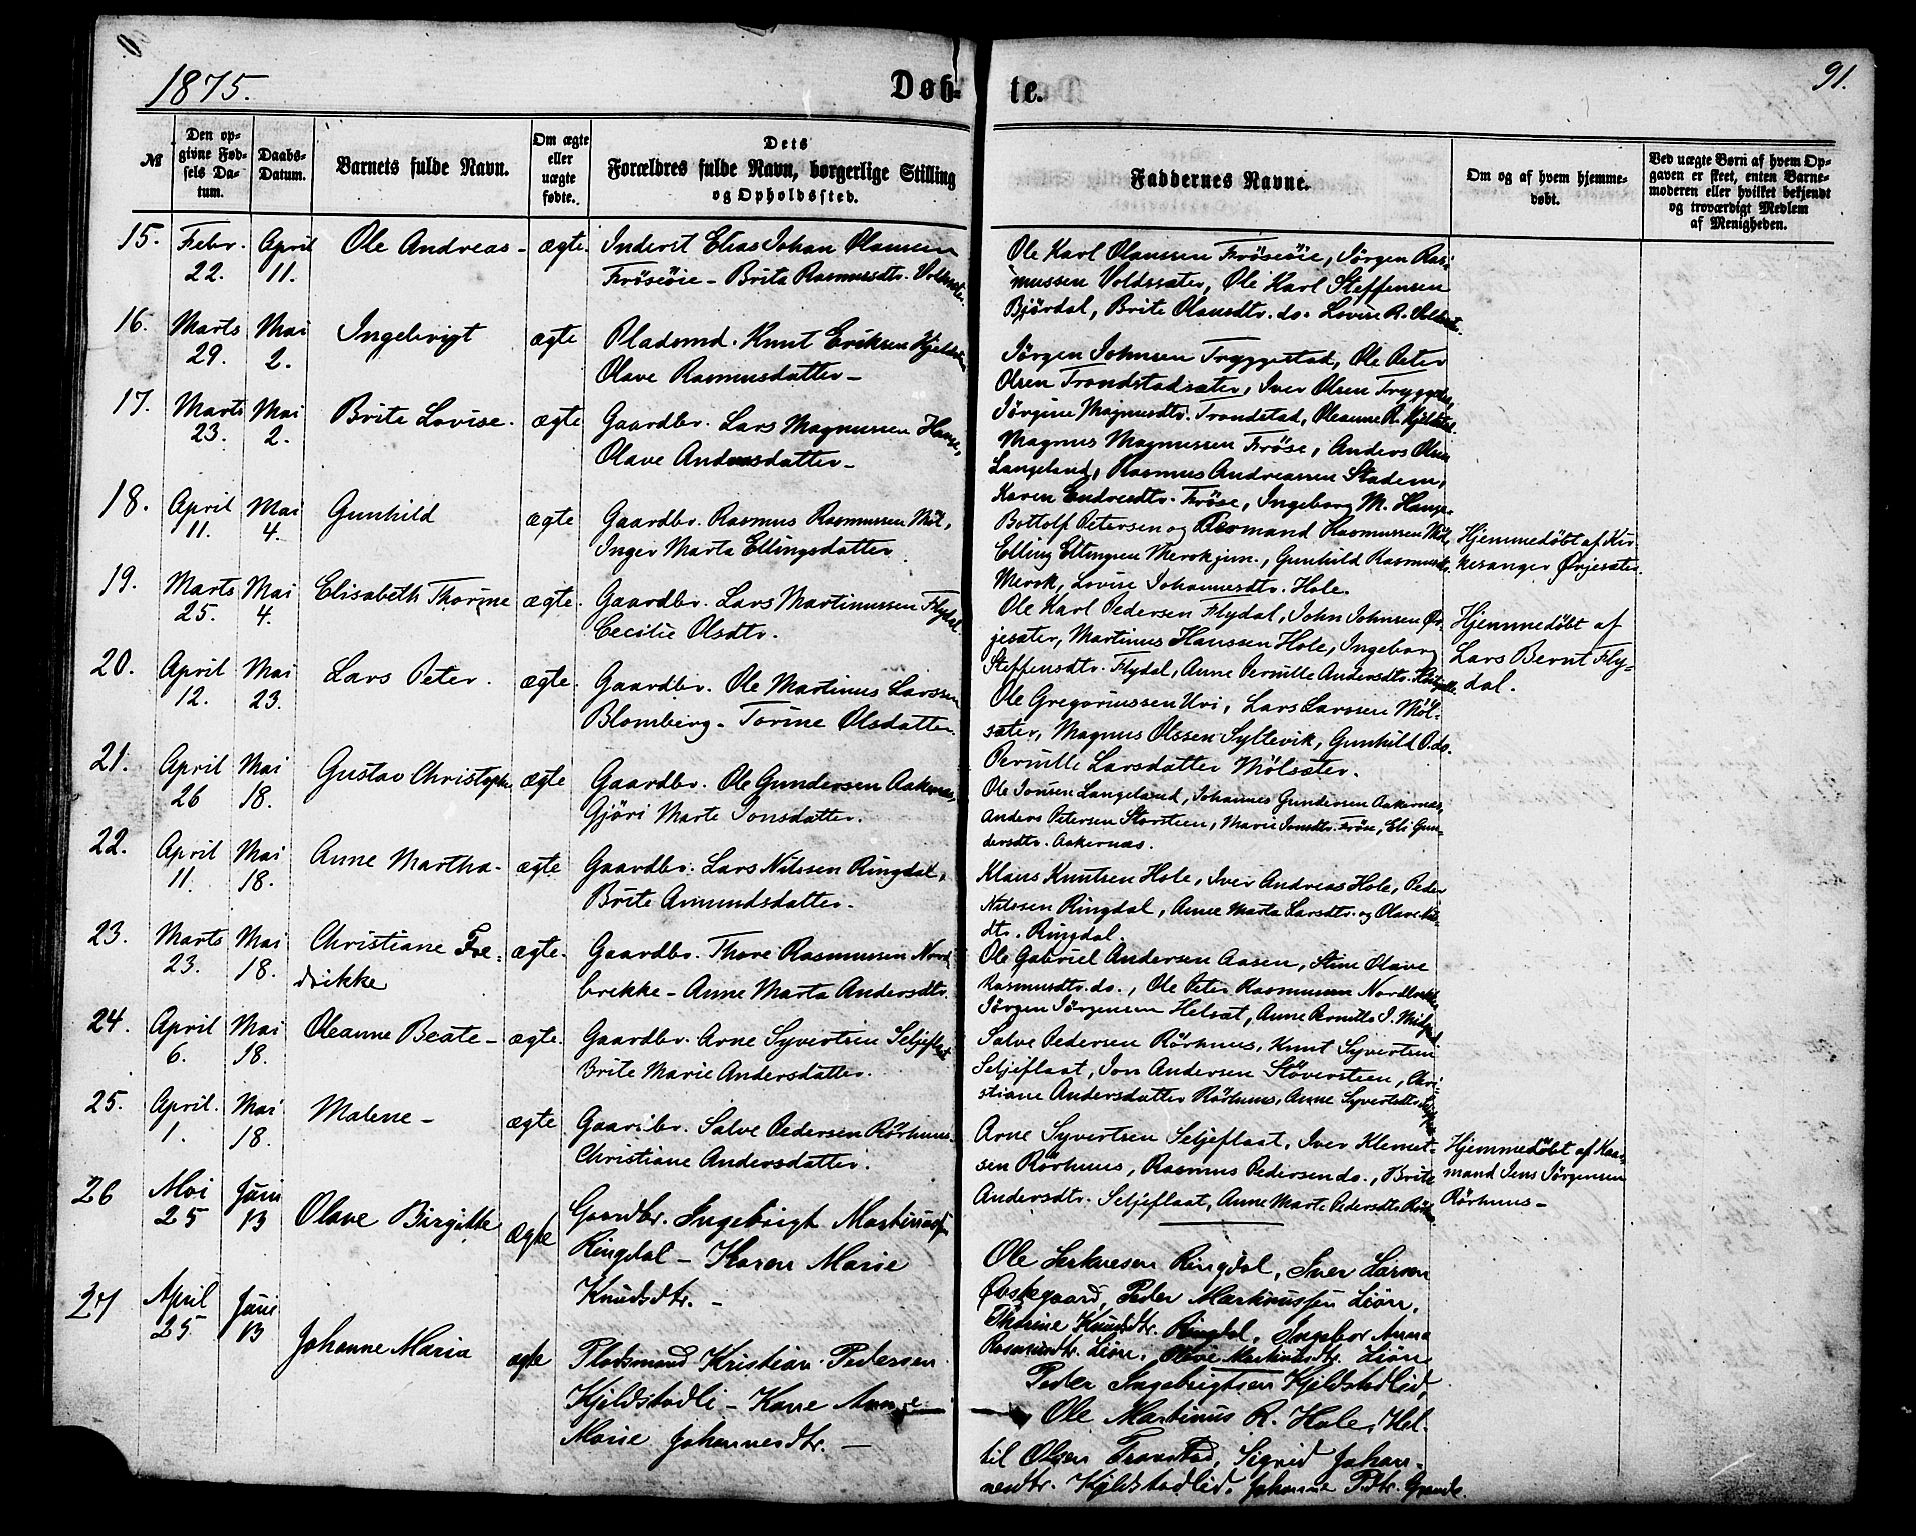 1875.
Døb-
te.
91.
№
Den op-
givne Fød-
sels Da-
tum.
Daabs-
Datum.
Barnets fulde Navn.
Om ægte
eller
uægte
fødte.
Dets
Forældres fulde Navn, borgerlige Stilling
og Opholdssted.
Faddernes Navne.
Om og af hvem hjemme-
døbt.
Ved uægte Børn af hvem Op-
gaven er skeet, enten Barne-
moderen eller hvilket bekjendt
og troværdigt Medlem
af Menigheden.
15. Febr. 22. April 11. Ole Andreas - ægte. Inderst Elias Johan Olausen
Frøsøie - Brita Rasmusdtr. Voldsæter.
Ole Karl Olaussen Frøsøie, Jørgen Ras-
mussen Voldssæter, Ole Karl Steffensen
Bjørdal, Brite Olausdtr. do. Lovise R. Voldsæt.
16. Marts 29. Mai 2. Ingebrigt ægte Pladsmd. Knut Eriksen
Olave Rasmusdatter -
Jørgen Johnsen Tryggestad, Ole Peter
Olsen Trandstadsæter, Iver Olsen Tryggest.,
Jørgine Magnusdtr. Trondstad, Oleanne R.
17. Marts 23. Mai 2. Brite Lovise. ægte Gaardbr. Lars Magnussen Hauge,
Olave Andersdatter -
Magnus Magnussen Frøse, Anders Olsen
Langeland, Rasmus Andreassen Stadem,
Karen Endresdtr. Frøse, Ingeborg M. Hauge.
18. April 11. Mai 4. Gunhild ægte Gaardbr. Rasmus Rasmussen Møl,
Inger Marta Ellingsdatter
Bottolf Petersen og Rasmus Rasmussen Møl,
Elling Ellingsen Merok, Gunhild Rasmusdtr.
Merok, Lovise Johannesdtr. Hole.
Hjemmedøbt af Kir-
kesanger Ørjesæter.
19. Marts 25. Mai 4. Elisabeth Thorine ægte. Gaardbr. Lars Martinussen Flydal.
Cecilie Olsdtr.
Ole Karl Pedersen Flydal, John Johnsen Ør-
jesæter, Martinus Hanssen Hole, Ingeborg
Steffensdtr. Flydal, Anne Pernille Andersdtr.
Hjemmedøbt af
Lars Bernt Fly-
dal.
20. April 12. Mai 23. Lars Peter. ægte. Gaardbr. Ole Martinus Larssen
Blomberg - Torine Olsdatter.
Ole Gregoriussen Uri, Lars Larssen Møl-
sæter, Magnus Olssen Syltevik, Gunhild O. do.
Pernille Larsdatter Mølsæter.
21. April 26 Mai 18. Gustav Christoph. ægte Gaardbr. Ole Gundersen Aakernæs,
Gjøri Marte Jonsdatter.
Ole Jonsen Langeland, Johannes Gundersen Aakernæs,
Anders Petersen Storsteen, Marie Jonsdtr. Frøse, Eli Gun-
dersdtr. Aakernæs.
22. April 11. Mai 18. Anne Martha - ægte Gaardbr. Lars Nilssen Ringdal,
Brite Amundsdatter.
Klaus Knutsen Hole, Iver Andreas Hole, Peder
Nilssen Ringdal, Anne Marta Larsdtr. og Olave
dtr. Ringdal.
23. Marts 23. Mai 18. Christiane Fre-
drikke ægte. Gaardbr. Thore Rasmussen Nord-
brekke - Anne Marta Andersdtr.
Ole Gabriel Andersen Aasen, Stine Olave
Rasmusdtr. do., Ole Peter Rasmussen Nordbrekke,
Jørgen Jørgensen Helset, Anne Pernille J.
24. April 6. Mai 18. Oleanne Beate - ægte. Gaardbr. Arne Syvertsen Seljeflaat
Brite Marie Andersdatter.
Salve Pedersen Rørhuus, Knut Syvertsen
Seljeflaat, Jon Andersen Støversteen, Chri-
stiane Andersdatter Rørhuus, Anne Syvertsdtr.
25. April. 1. Mai 18. Malene - ægte Gaardbr. Salve Pedersen Rørhuus.
Christiane Andersdatter.
Arne Syvertsen Seljeflaat, Iver Klemet-
sen Rørhuus, Rasmus Pedersen do., Brite
Andersdtr. Seljeflaat, Anne Marte Pedersdtr.
Hjemmedøbt af Kaar-
mand Jens Jørgensen
Rørhuus -
26 Mai 25 Juni 13 Olave Birgitte ægte Gaardbr. Ingebrigt Martinussen
Ringdal - Karen Marie
Knudsdtr. -
Ole Ringdal, Iver Larsen
Peder Martinussen Liøn,
Thorine Knudsdtr. Ringdal, Ingebor Anna
Rasmusdtr. Liøn, Olave Martinusdtr. Liøn
27 April 25 Juni 13 Johanne Maria ægte Pladsmand Kristian Pedersen
Kjeldstadli - Kare Anne
Marie Johannesdtr. -
Peder Ingebrigtsen Kjeldstadlid,
Ole Martinus R. Hole, Ket-
til Olsen Tronstad, Sigrid Johan-
nesdtr. Kjeldstadlid, Johanne Pdtr. Grande.